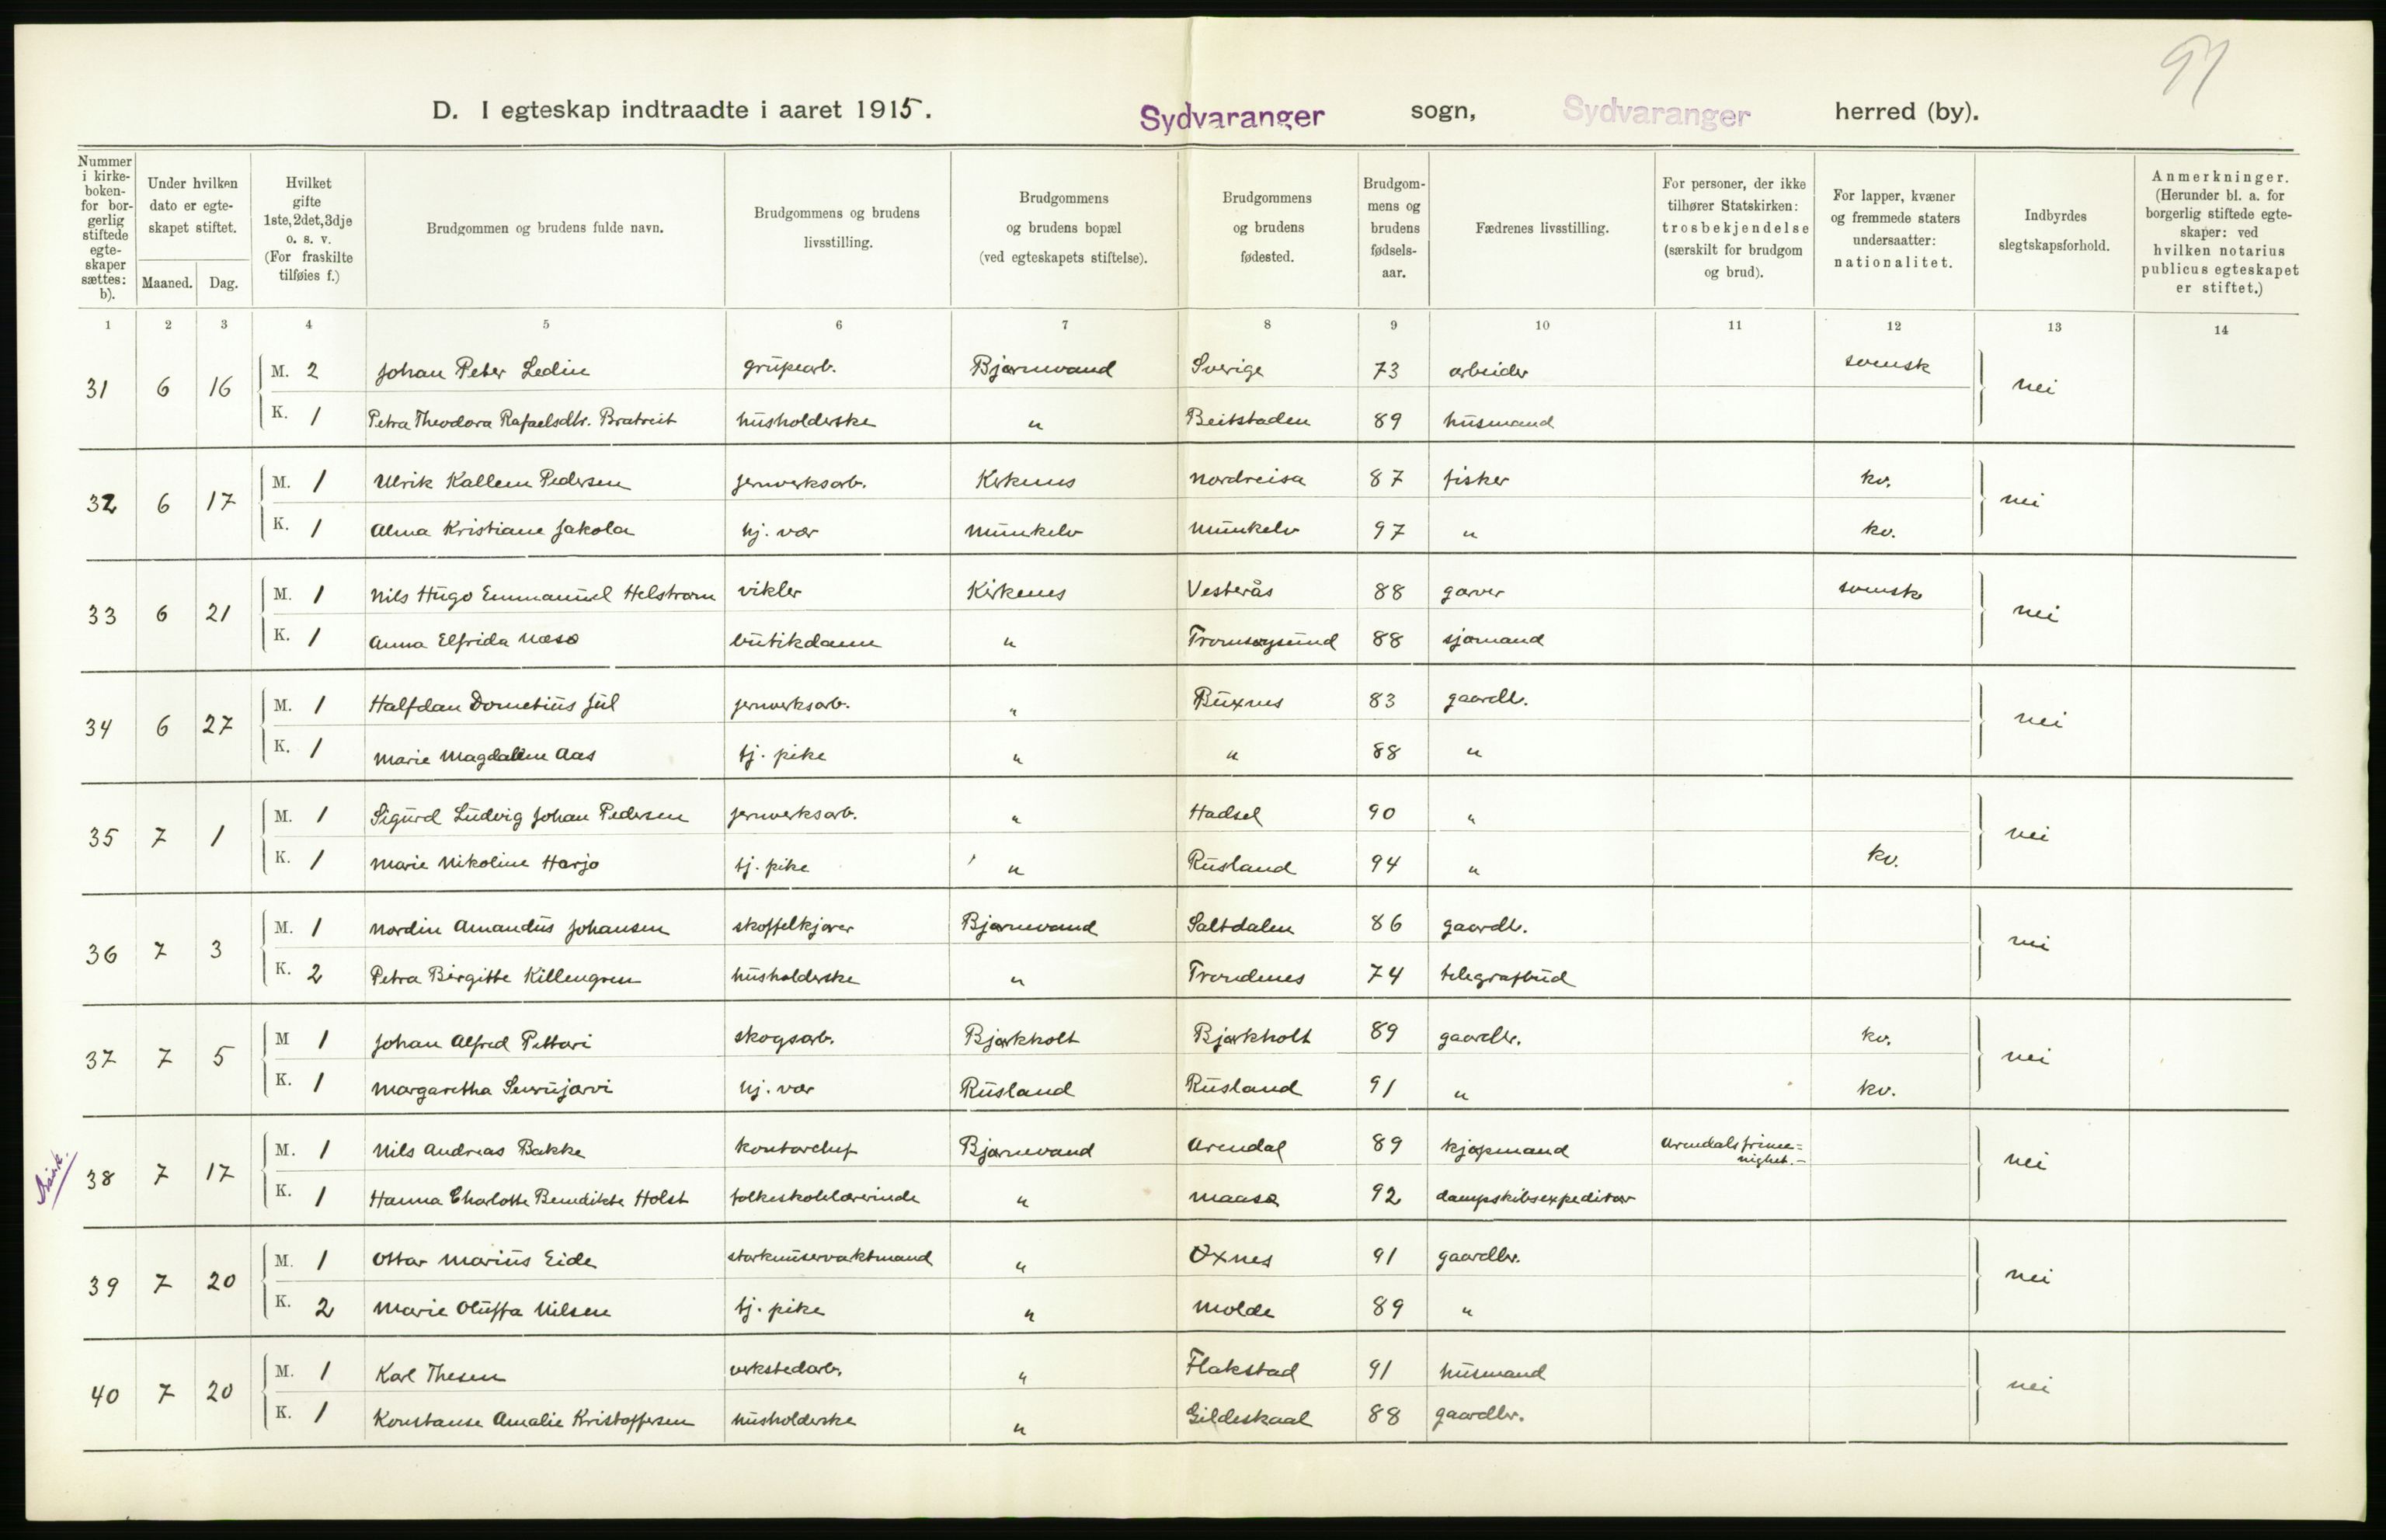 97
D. I egteskap indtraadte i aaret 1915. Sydvaranger sogn, Sydvaranger herred (by).
Nummer i kirkeboken- for borgerlig stiftede egteskaper sættes: b). Under hvilken dato er egteskapet stiftet. Maaned. Dag. Hvilket gifte 1ste, 2det, 3dje o. s. v. (For fraskilte tilføies f.) Brudgommen og brudens fulde navn. Brudgommens og brudens livsstilling. Brudgommens og brudens bopæl (ved egteskapets stiftelse). Brudgommens og brudens fødested. Brudgommens og brudens fødselsaar. Fædrenes livsstilling. For personer, der ikke tilhører Statskirken: trosbekjendelse (særskilt for brudgom og brud). For lapper, kvæner og fremmede staters undersaatter: nationalitet. Indbyrdes slegtskapsforhold. Anmerkninger. (Herunder bl. a. for borgerlig stiftede egteskaper: ved hvilken notarius publicus egteskapet er stiftet.)
1 2 3 4 5 6 7 8 9 10 11 12 13 14
31 6 16 M. 2 Johan Peter Ledin grupearb. Bjørnevand Sverige 73 arbeider svensk nei
K. 1 Petra Theodora Rafaelsdtr. Bratreit husholderske " Beitstaden 89 husmand
32 6 17 M. 1 Ulrik Kallem Pedersen jernverksarb. Kirkenes Nordreisa 87 fisker kv. nei
K. 1 Alma Kristiane Jakola hj. vær Munkelv Munkelv 97 " kv.
33 6 21 M. 1 Nils Hugo Emmanuel Helstrøm vikler Kirkenes Vesterås 88 garver svensk nei
K. 1 Anna Elfrida Næsø butikdame " Tromsøysund 88 sjømand
34 6 27 M. 1 Halfdan Dometius Jul jernverksarb. " Buxnes 83 gaardb. nei
K. 1 Marie Magdalene Aas tj. pike " " 88 "
35 7 1 M. 1 Sigurd Ludvig Johan Pedersen jernverksarb. " Hadsel 90 " nei
K. 1 Marie Nikoline Harjo tj. pike " Rusland 94 " kv.
36 7 3 M. 1 Nordin Amandus Johansen skoffelkjører Bjørnevand Saltdalen 86 gaardb. nei
K. 2 Petra Birgitte Killengren husholderske " Trondenes 74 telegrafbud
37 7 5 M 1 Johan Alfred Pettari skogsarb. Bjørkholt Bjørkholt 89 gaardbr. kv. nei
K. 1 Margaretha hj. vær Rusland Rusland 91 " kv.
38 7 17 M. 1 Nils Andreas Bakke kontorchef Bjørnevand Arendal 89 kjøpmand Arendals frime=
nighet.- nei
K. 1 Hanna Charlotte Benedikte Holst folkeskolelærerinde " Maasø 92 dampskibsexpeditør
39 7 20 M. 1 Ottar Marius Eide storknuservaktmand " Øxnes 91 gaardbr. nei
K. 2 Marie Oluffa Nilsen tj. pike " Molde 89 "
40 7 20 M. 1 Karl Thesen verkstedarb. " Flakstad 91 husmand nei
K. 1 Konstanse Amalie Kristoffersen husholderske " Gildeskaal 88 gaardbr.